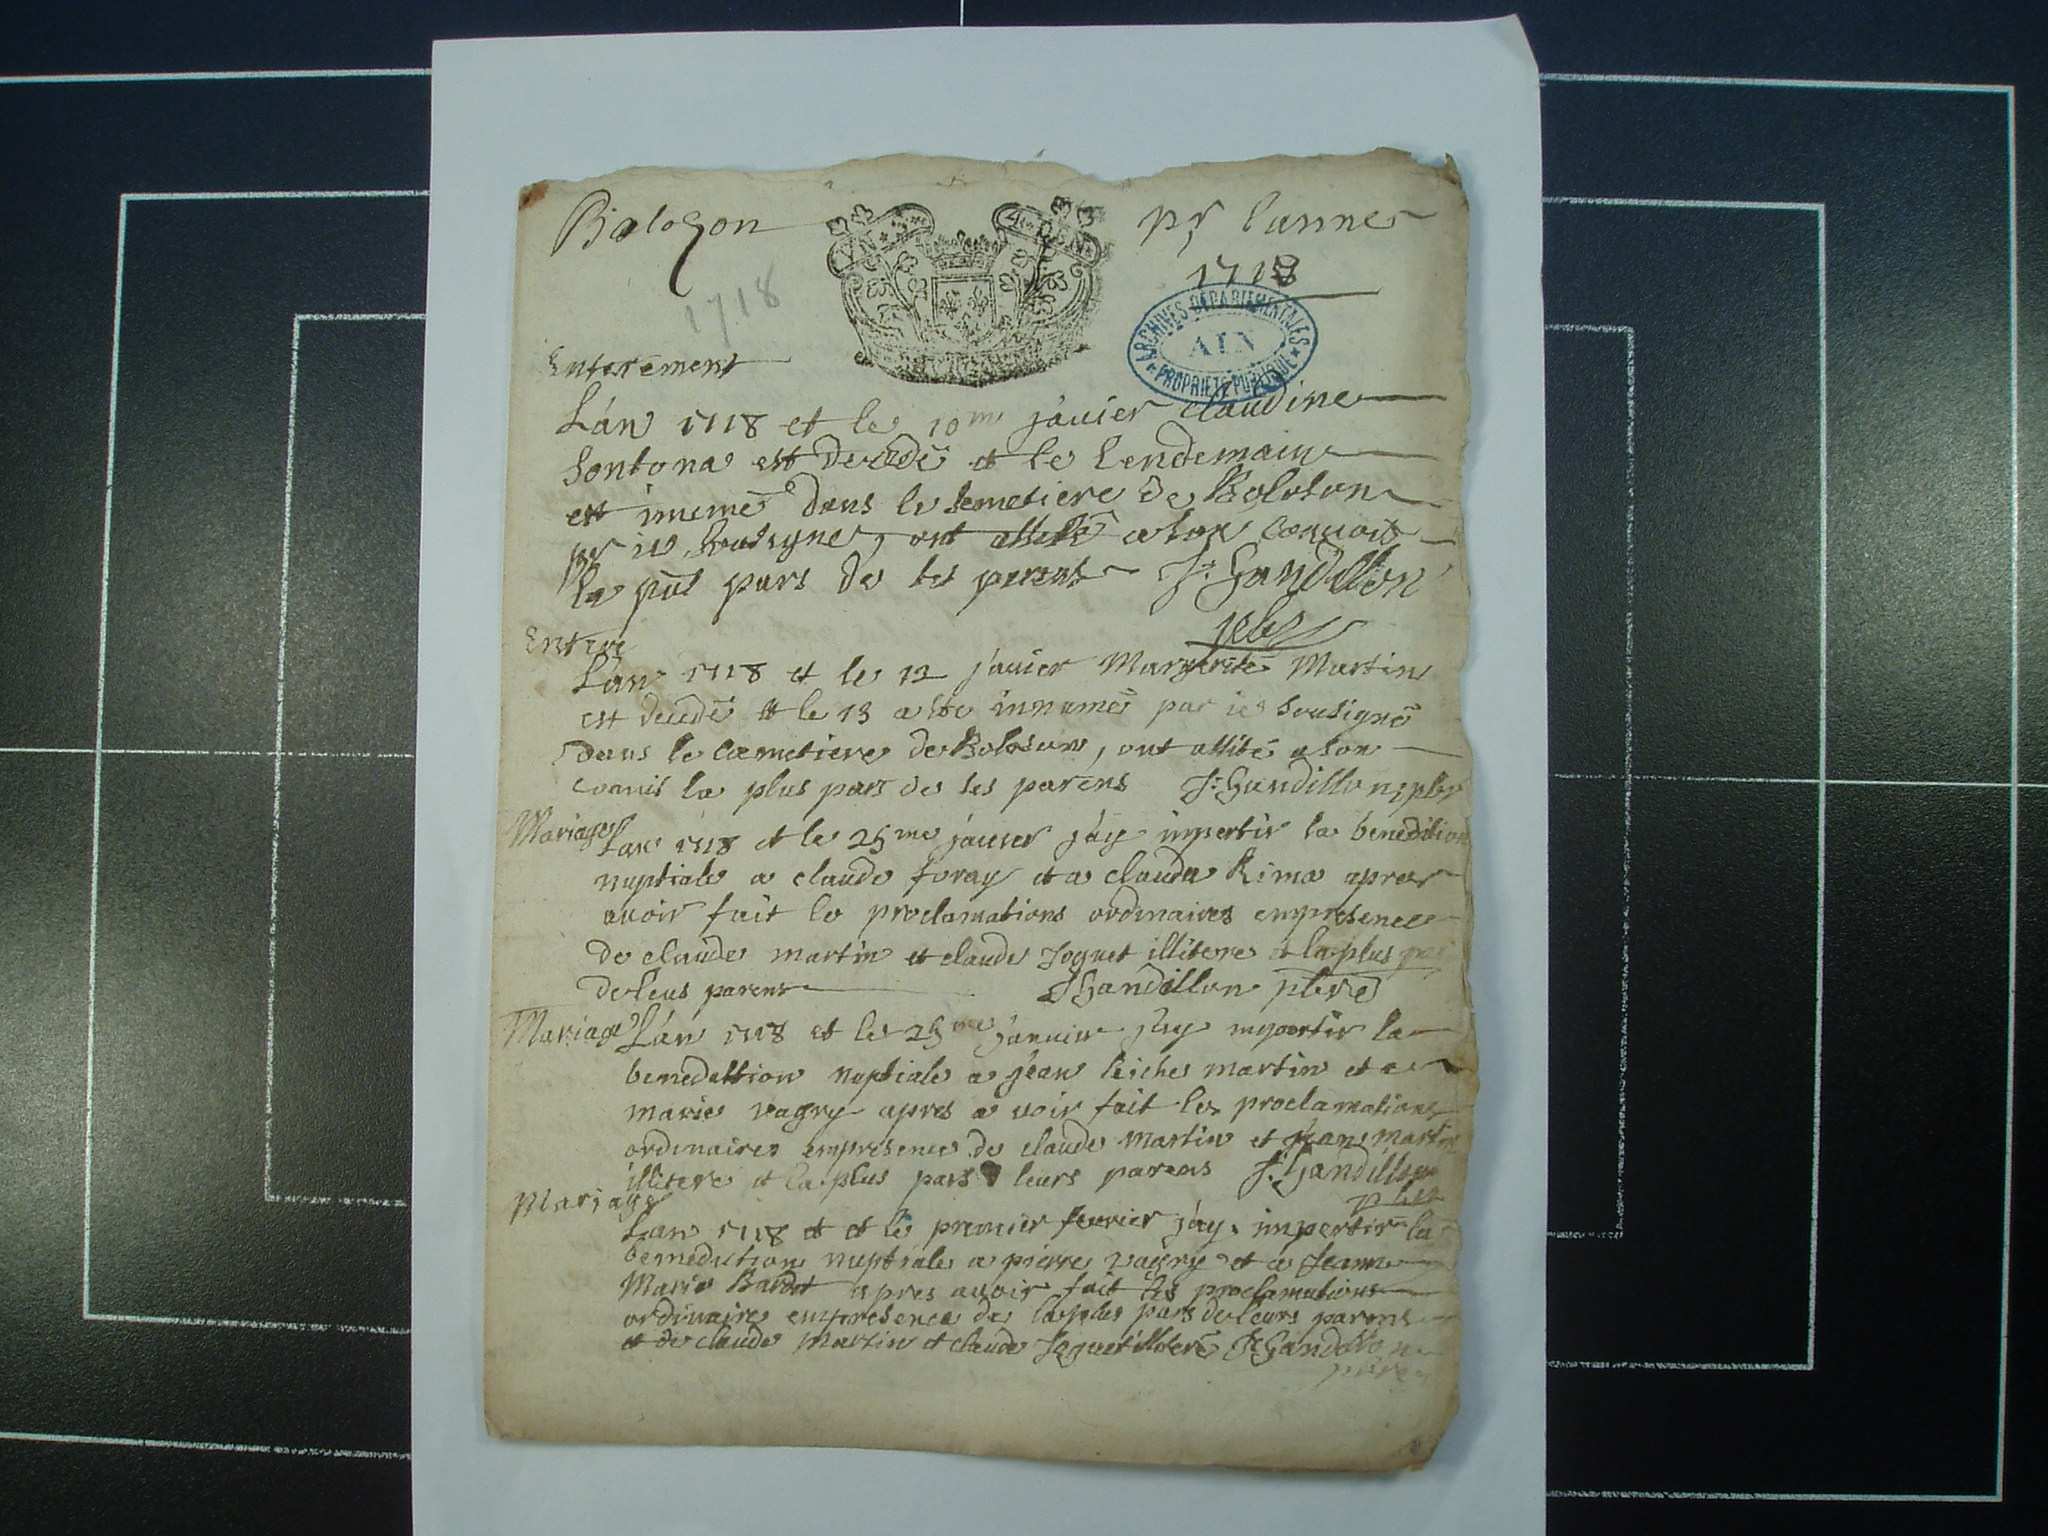 Bolozon
pr lannee
1718
1718
ARCHIVES DÉPARTEMENTALES
AIN
PROPRIÉTÉ PUBLIQUE
Enterement
Lán 1718 et le 10me jáuier claudine
est decedé et le Lendemain
est inumé dans le semetiere de Boloson
pr ie Sousigne, ont assisté a son conuoit
la plus pars de ses parens J: Gandillon
ptre
Enterre
Lán 1718 et le 12 jáuier Margerite Martin
est decedé et le 13 a ete innumé par ie sousigné
dans le cemetiere de Boloson, ont assité a son
conuis la plus pars de ses parens J: Gandillon, ptre
Mariage
Lan 1718 et le 25me jáuier jáy impertir la benedition
nuptiale a claude foray et a clauda Rima apres
auoir fait le proclamations ordinaires empresence
de claude martin et claude Joguet illitere et la plus
de leus parens J Gandillon ptre
Mariage
Lán 1718 et le 25me januier jáy impertir la
benedittion nuptiale a jéan martin et a
marie vagry apres a uoir fait les proclamations
ordinaires empresence de claude martin et jéan martin
illitere et la plus pars leurs parens J: Gandillon
ptre
Mariage
Lan 1718 et et le premier feurier jáy impertir la
benediction nuptiale a pierre vagry et a Jeanne
Marie apres auoir fait les proclamations
ordinaires empresence de la plus pars de leurs parens
et de claude Martin et claude Joguet illitere J: Gandillon
ptre